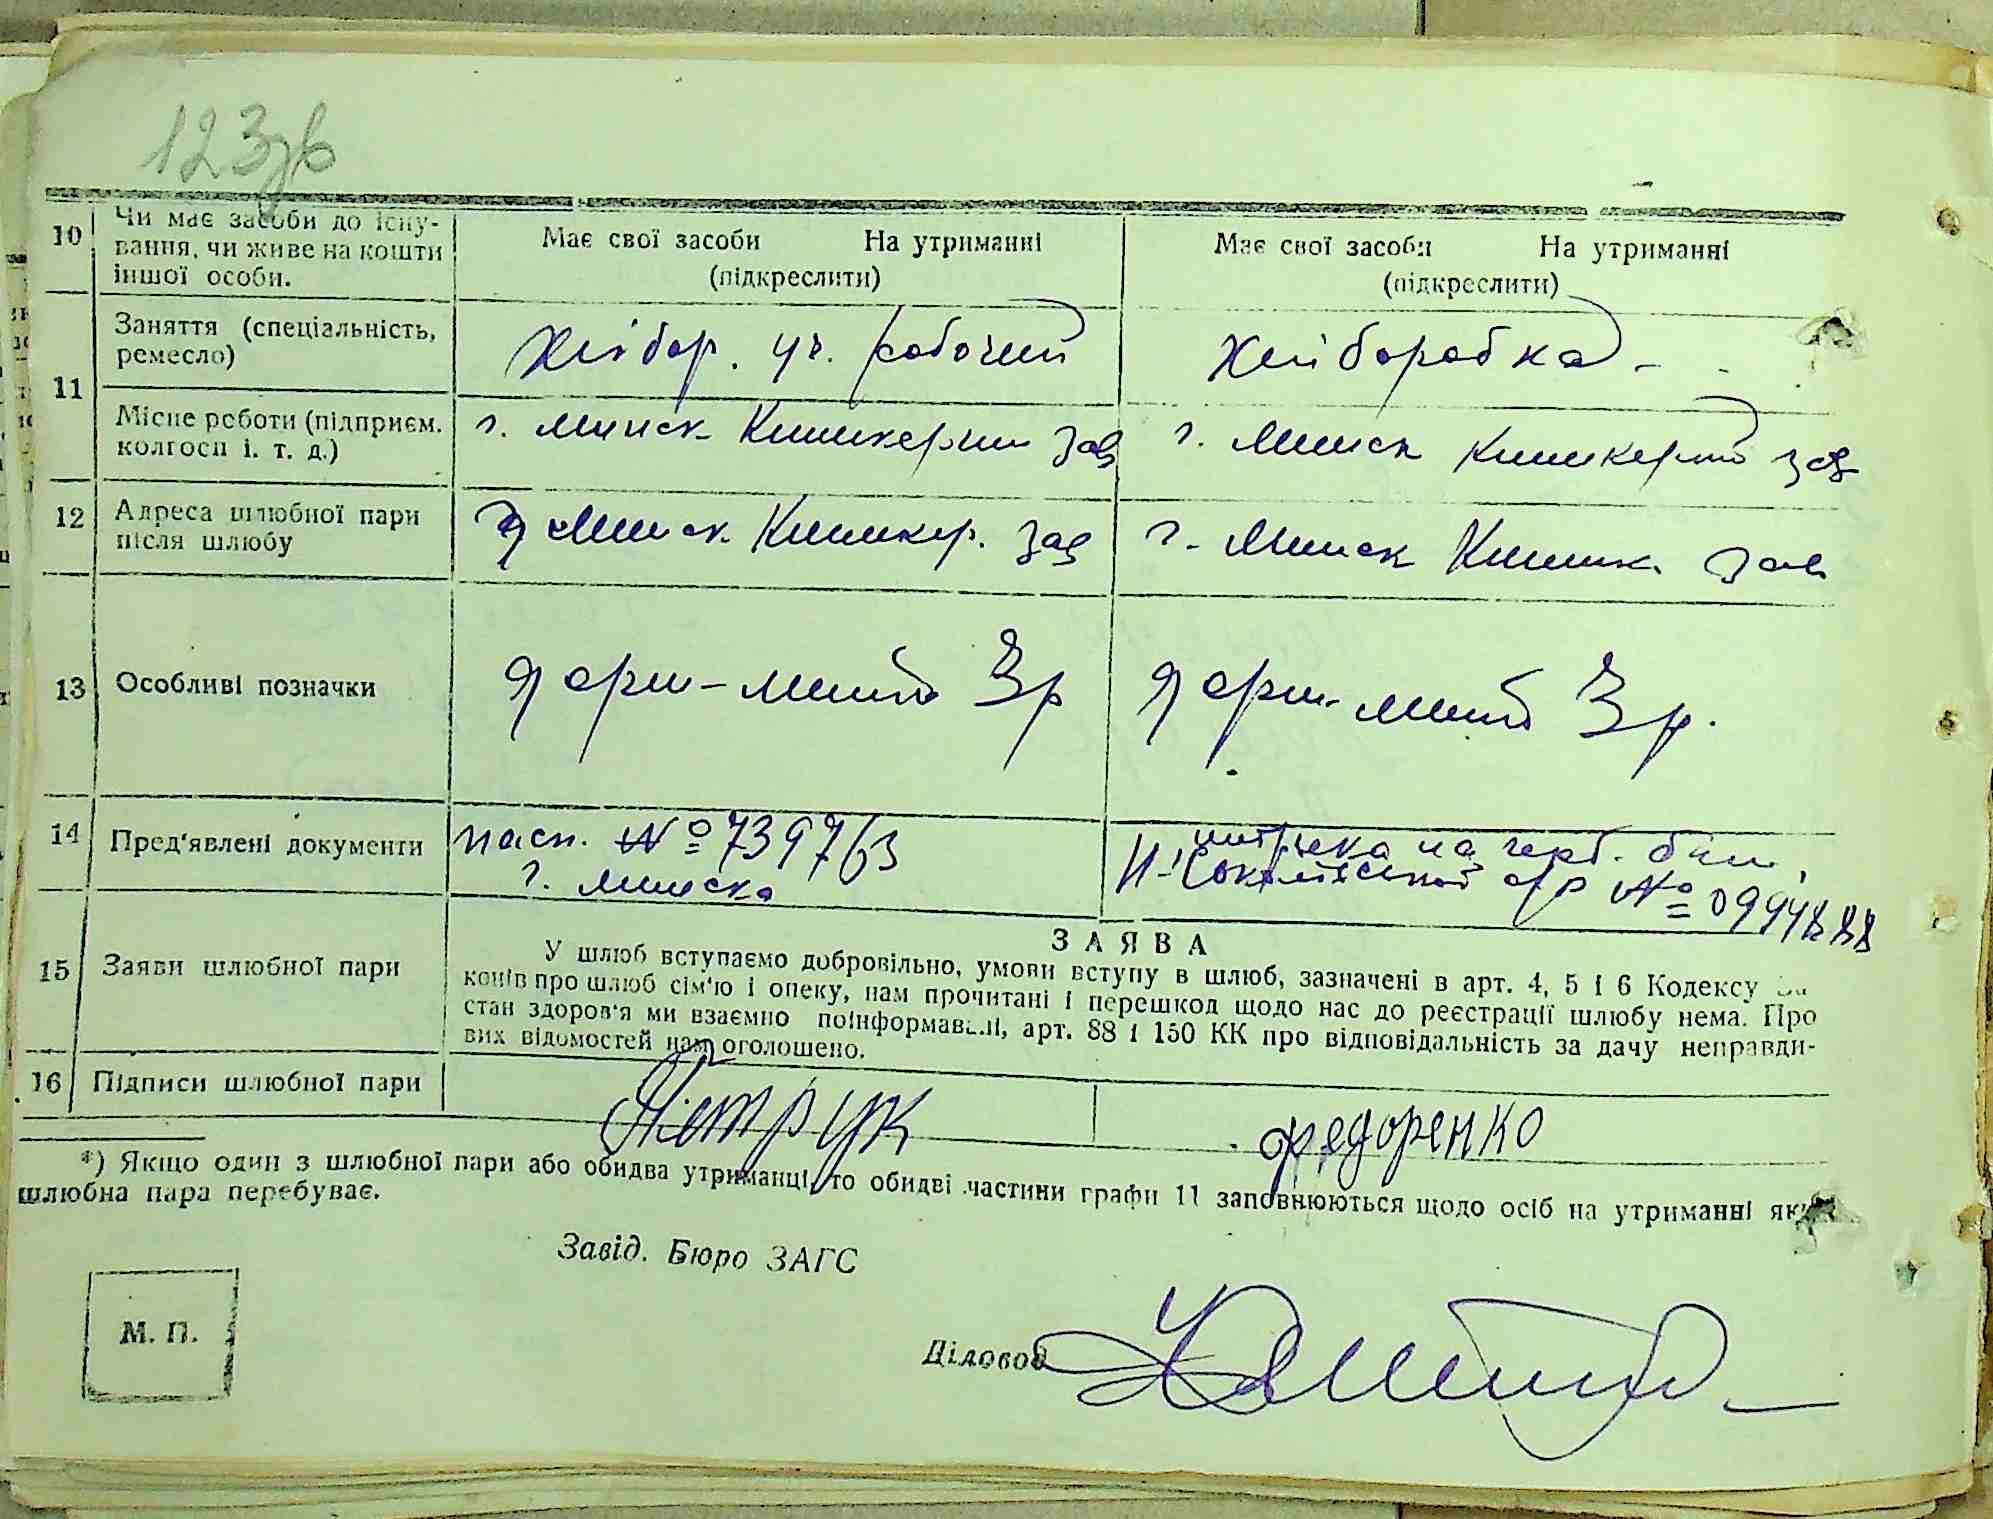 123зв
10 Чи має засоби до існу-
вання, чи живе на кошти
іншої особи.
Має свої засоби На утриманні
(підкреслити)
Має свої засоби На утриманні
(підкреслити)
11 Заняття (спеціальність,
ремесло)
Хлібор. уч. рабочий
Хліборобка
Місце роботи (підприєм.
колгосп і. т. д.)
г. Минск зав
г. Минск зав
12 Адреса шлюбної пари
після шлюбу
Минск. зав
г. Минск зав
13 Особливі позначки
3 р
3 р.
14 Пред'явлені документи
пасп. № 739763
г. Минска
на герб.
№
15 Заяви шлюбної пари
ЗАЯВА
У шлюб вступаємо добровільно, умови вступу в шлюб, зазначені в арт. 4, 5 і 6 Кодексу за
конів про шлюб сім'ю і опеку, нам прочитані і перешкод щодо нас до реєстрації шлюбу нема. Про
стан здоров'я ми взаємно поінформавані, арт. 88 і 150 КК про відповідальність за дачу неправди-
вих відомостей нам оголошено.
16 Підписи шлюбної пари
Петрук
Федоренко
*) Якщо один з шлюбної пари або обидва утриманці, то обидві частини графи 11 заповнюються щодо осіб на утриманні яких
шлюбна пара перебуває.
Завід. Бюро ЗАГС
М. П.
Діловод